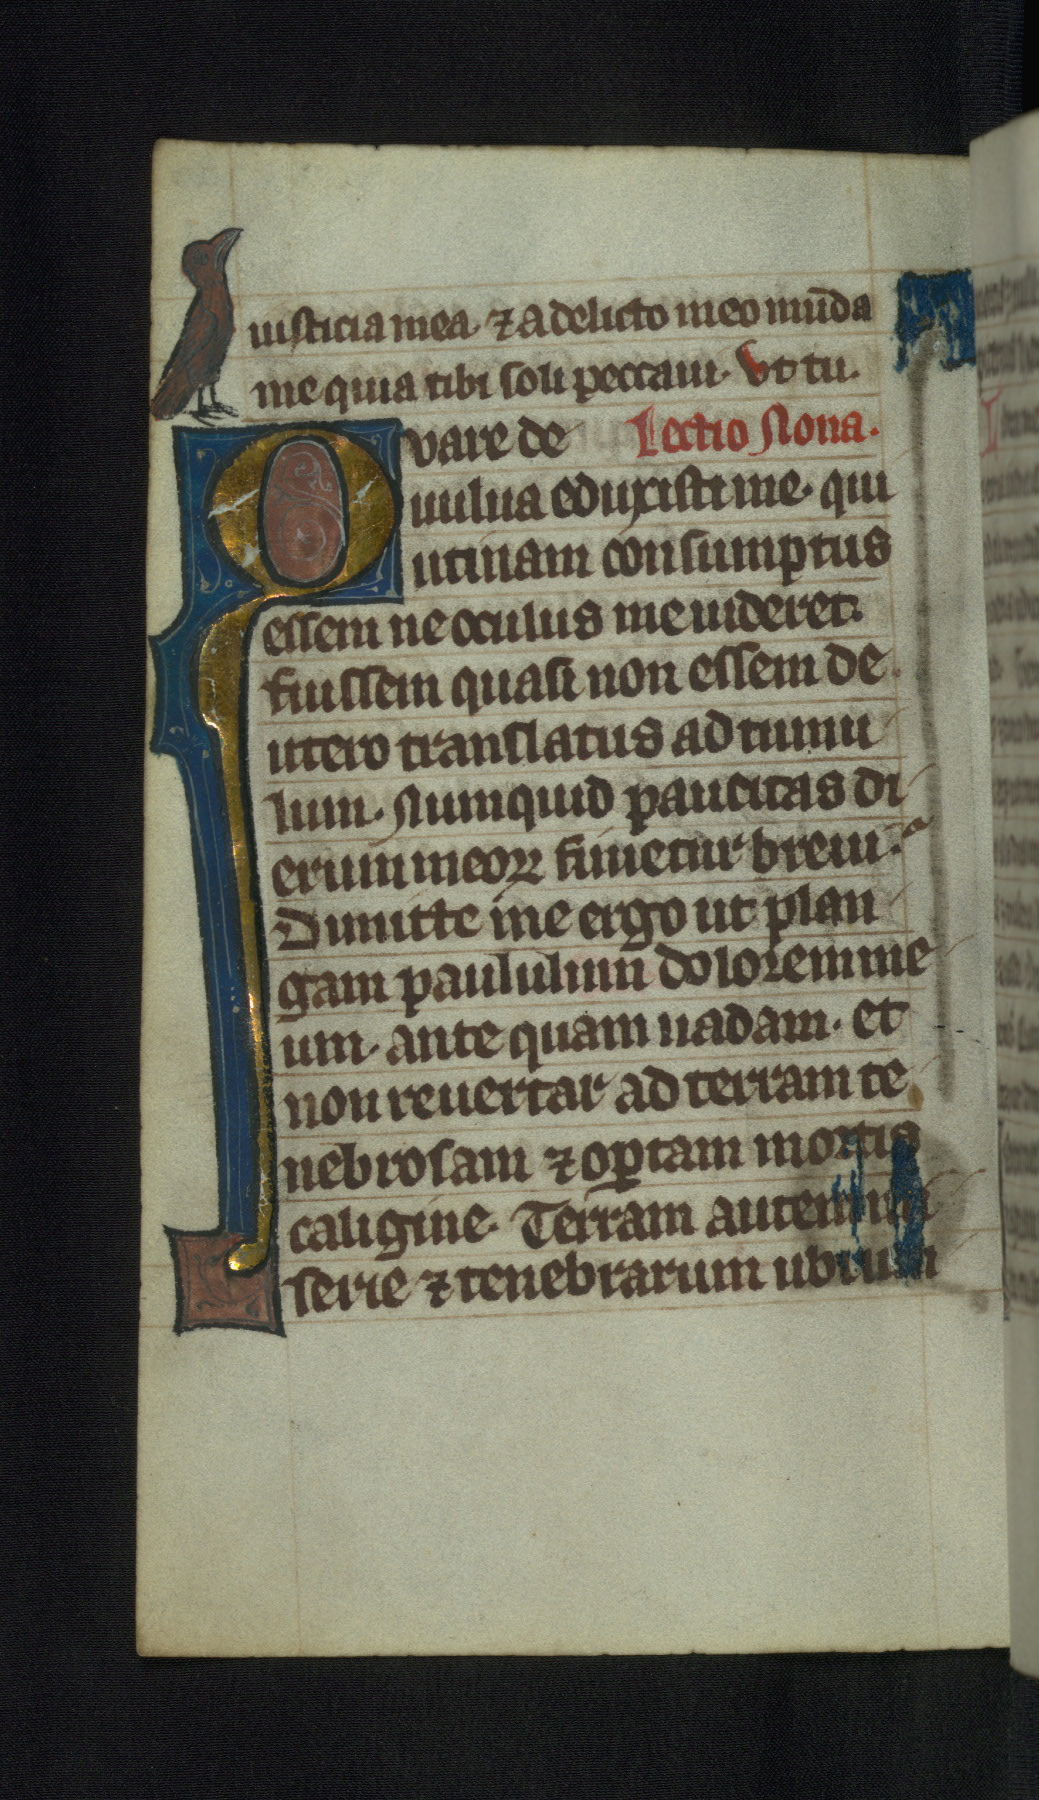 iusticia mea ⁊ a delicto meo mūda
me quia tibi soli peccaui. Vt tu.
Quare de Lectio Nona.
uulua eduxisti me. qui
utinam consumptus
essem ne oculus me uideret.
fuissem quasi non essem de
utero translatus ad tumu
lum. Numquid paucitas di
erum meoꝝ finietur breui.
Dimitte me ergo ut plan
gam paululum dolorem me
um. ante quam uadam. et
non reuertar ad terram te
nebrosam ⁊ oꝑtam mortis
caligine. Terram autem mi
serie ⁊ tenebrarum ubi um